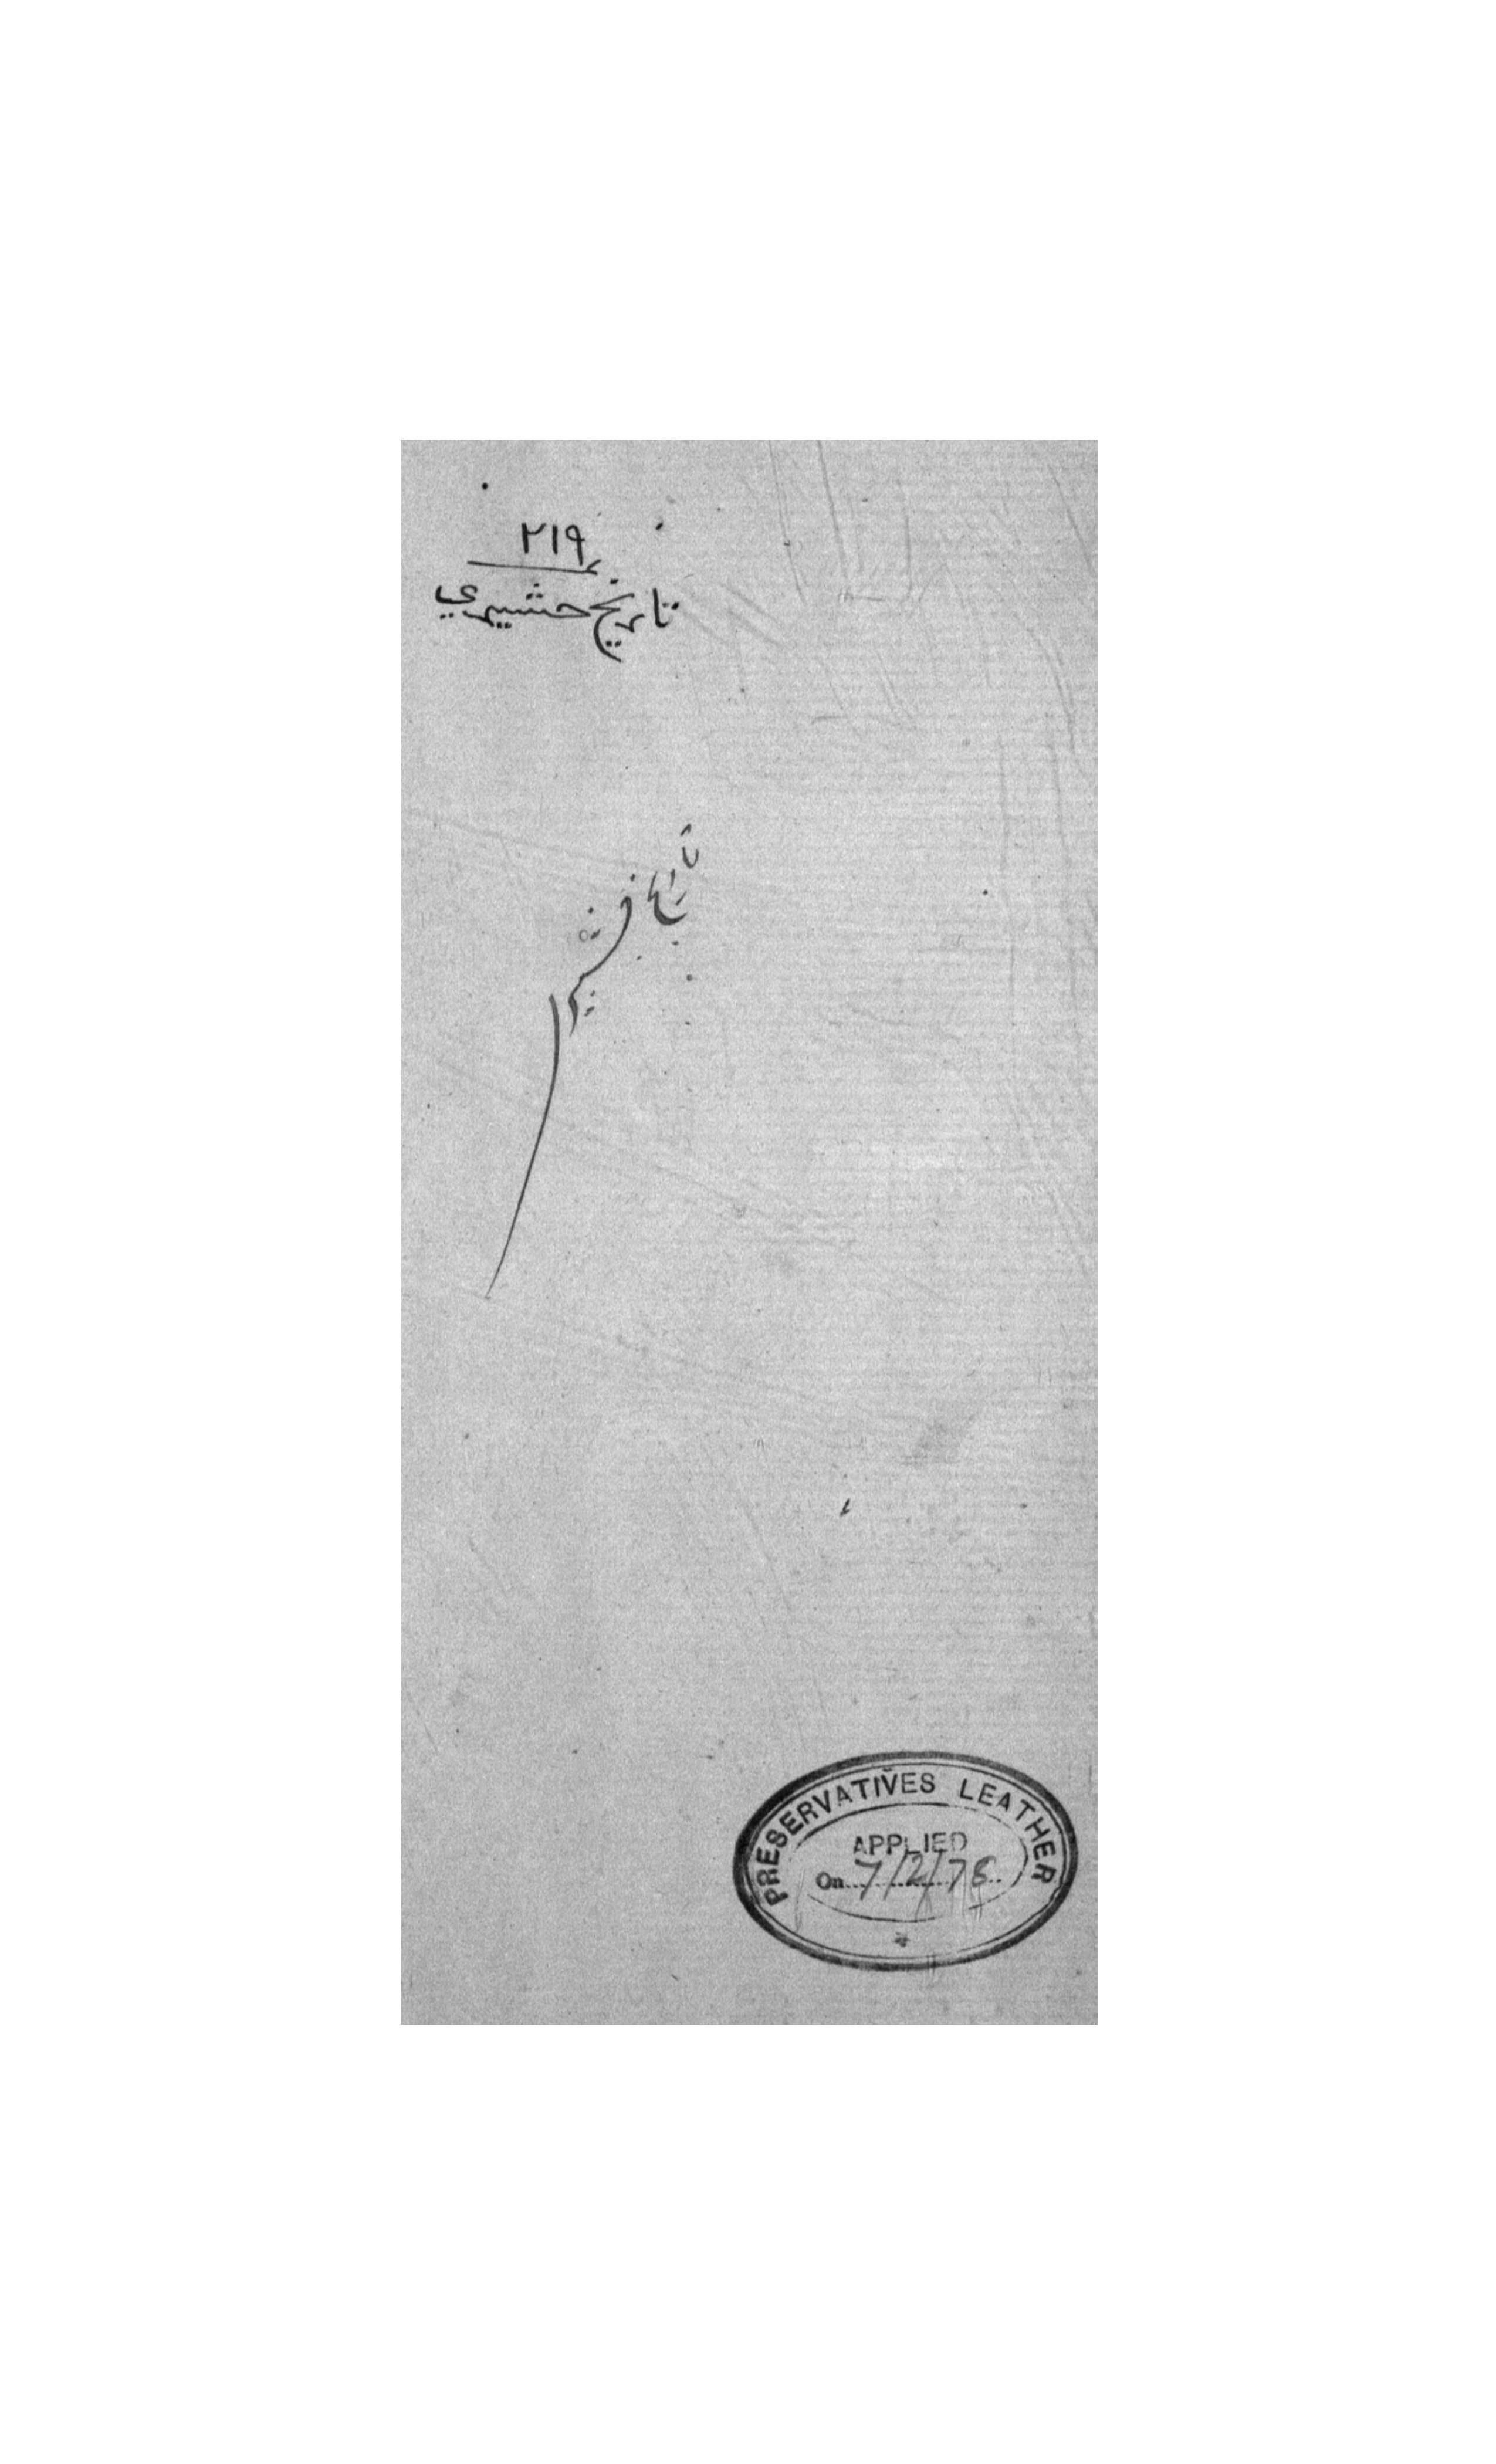 ۲۱۹
تاريخ حشيري
تاریخ
PRESERVATIVES LEATHER
APPLIED
On 7/2/78